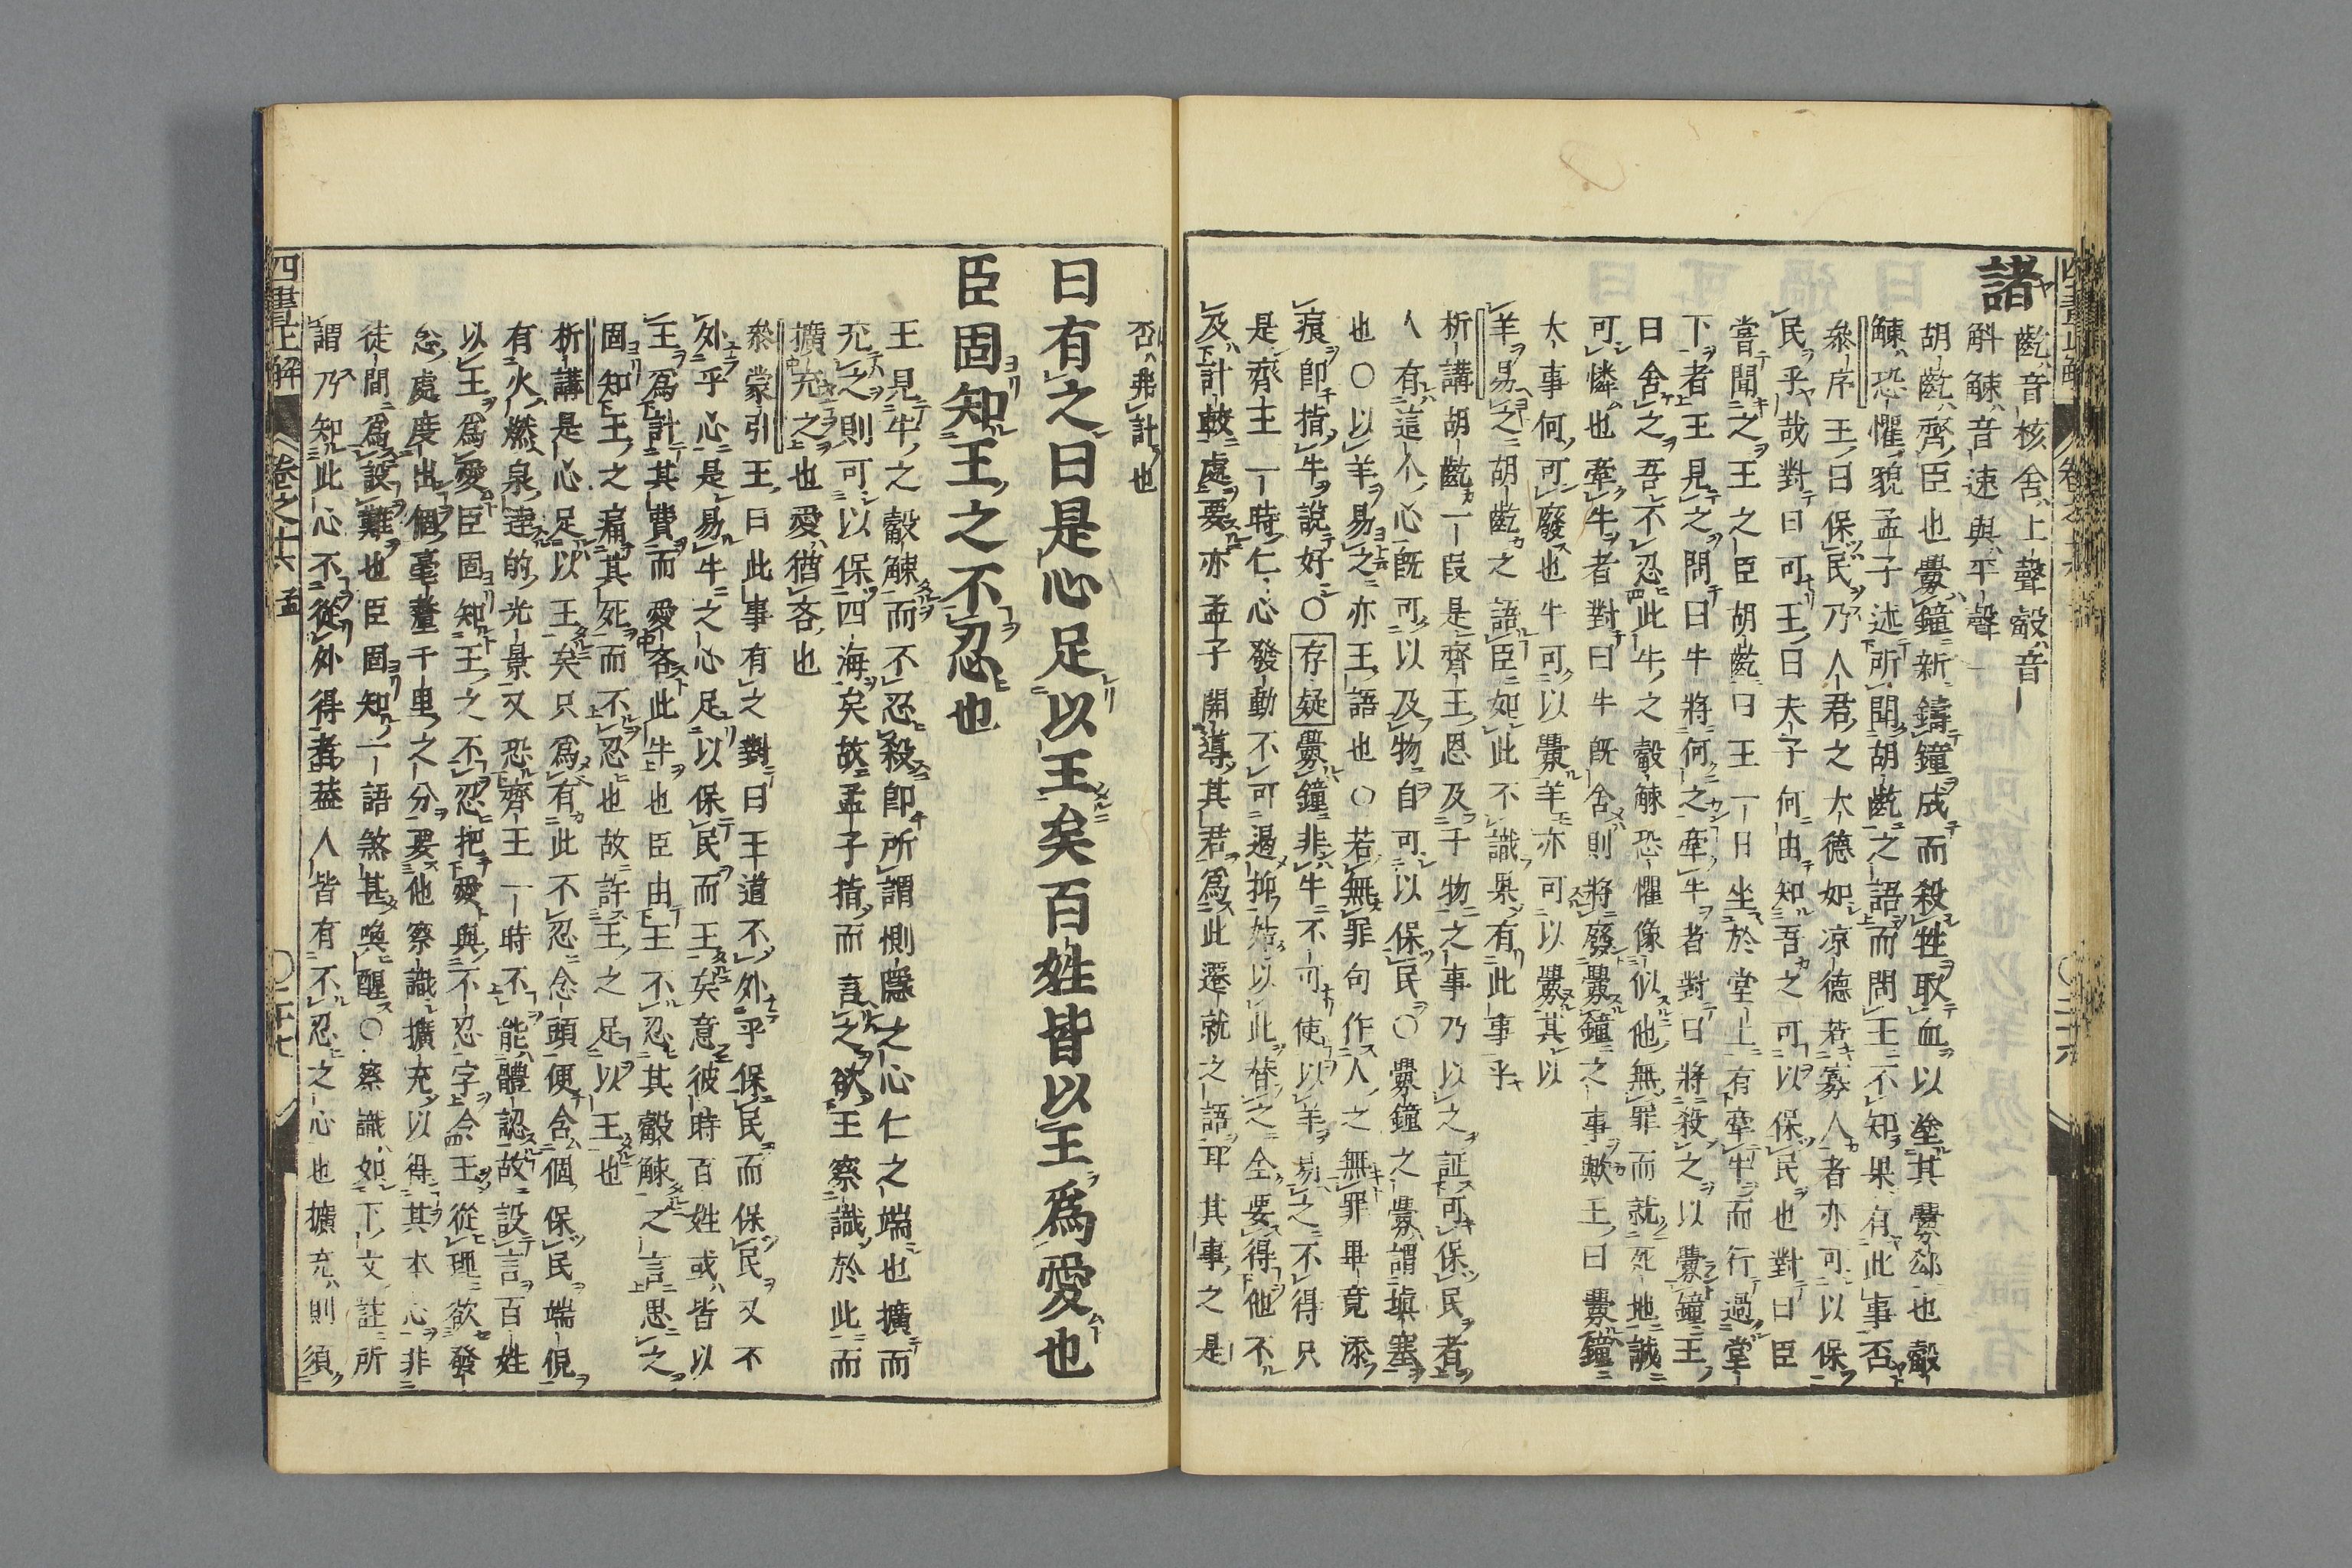 諸
齕音核舍上聲觳音
斛觫音速與平聲
胡齕齊臣也釁鐘新鑄鐘成而殺牲取血以塗其釁郄也觳
觫恐懼貌孟子述所聞胡齕之語而問王不知果有此事否
叅序王曰保民乃人君之大德如凉德若寡人者亦可以保
民乎哉對曰可王曰夫子何由知吾之可以保民也對曰臣
嘗聞之王之臣胡齕曰王一日坐於堂上有牽牛而行過堂
下者王見之問曰牛將何之牽牛者對曰將殺之以釁鐘王
曰舍之吾不忍此牛之觳觫恐懼像似他無罪而就死地誠
可憐也牽牛者對曰牛既舍則將廢釁鐘之事歟王曰釁鐘
大事何可廢也牛可以釁羊亦可以釁其以
羊易之胡齕之語臣如此不識果有此事乎
析講胡齕一段是齊王恩及于物之事乃以之証可保民者
人有這个心既可以及物自可以保民〇釁鐘之釁謂塡塞
也〇以羊易之亦王語也〇若無罪句作人之無罪畢竟添
痕即指牛說好〇存疑釁鐘非牛不可使以羊易之不得只
是齊主一時仁心發動不可遏抑姑以此替之全要得他不
及計較處要亦孟子開導其君爲此遷就之語耳其事之是
否弗計也
曰有之曰是心足以王矣百姓皆以王爲愛也
臣固知王之不忍也
王見牛之觳觫而不忍殺即所謂惻隱之心仁之端也擴而
充之則可以保四海矣故孟子指而言之欲王察識於此而
擴充之也愛猶吝也
叅蒙引王曰此事有之對曰王道不外乎保民而保民又不
外乎心是易牛之心足以保民而王矣意彼時百姓或皆以
王爲計其費而愛吝此牛也臣由王不忍其觳觫之言思之
固知王之痛其死而不忍也故許王之足以王也
析講是心足以王矣只爲有此不忍念頭便含個保民端倪
有火燃泉達的光景又恐齊王一時不能體認故設言百姓
以王爲愛臣固知王之不忍把愛與不忍字令王從理欲發
念處度出個毫釐千里之分要他察識擴充以得其本心非
徒間爲設難也臣固知一語煞甚喚醒〇察識如下文註所
謂乃知此心不從外得者葢人皆有不忍之心也擴充則須
四書正解
卷之十六 孟
〇二十七